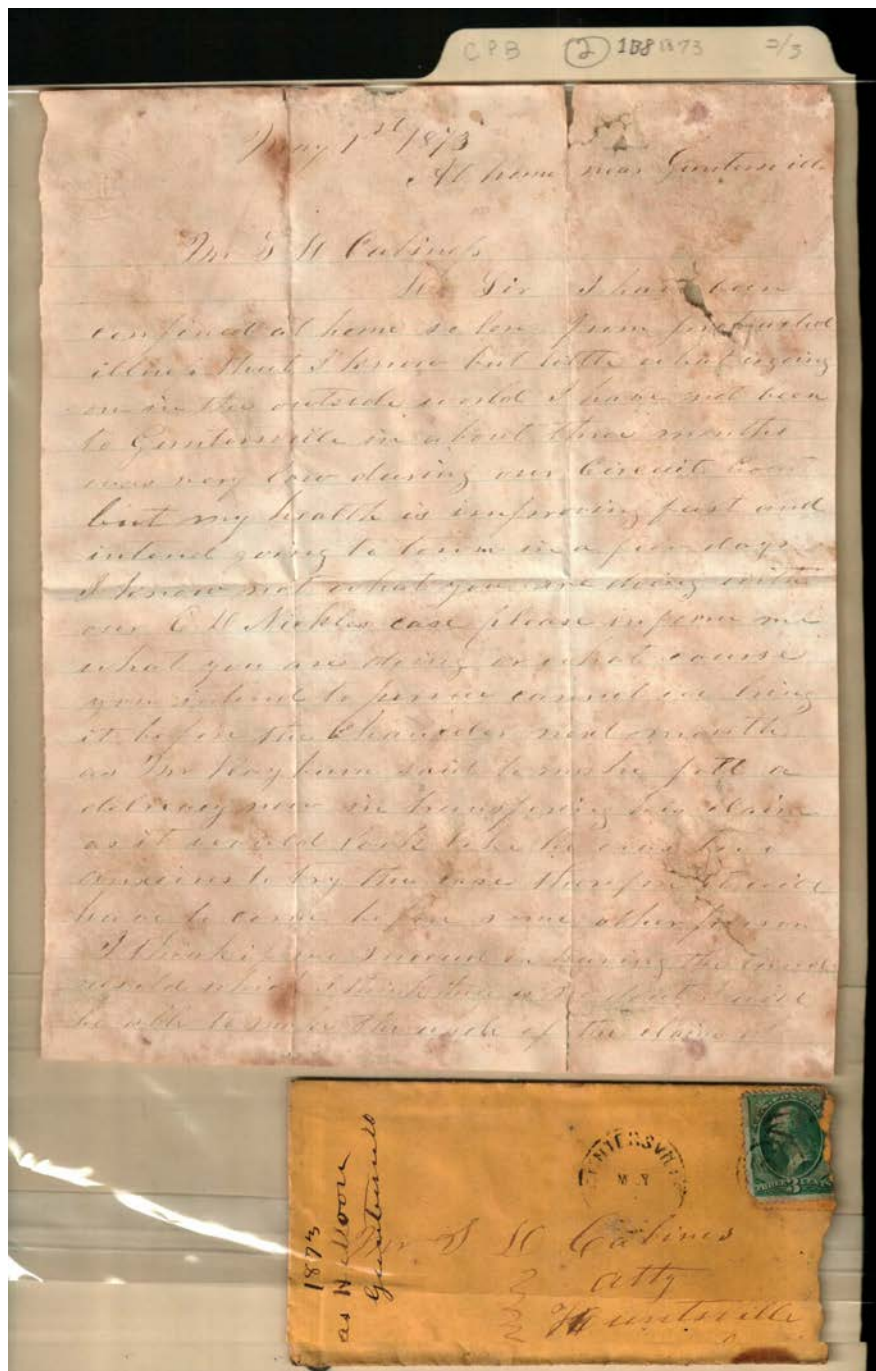 CPB ② 188 1873 2/3
May 1st 1873
At home near Guntersville
Mr S H Cabiness
Dr Sir I have been
confined at home so long from protracted
illness that I know but little what is going
on in the outside world I have not been
to Guntersville in about three months
was very low during our Circuit Court
but my health is improving fast and
intend going to town in a few days
I know not what you are doing with
our C D Nickles case please inform me
what you are doing or what course
you intend to persue cannot we bring
it before the Chancelor next month
as Mr Rayburn said to me he felt a
delicacy now in transfering his claim
as it would look like he was too
anxious to try the case therefore it will
have to come before some other person
I think if we succeed in having the
which I think there is no doubt I will
be able to make the of the claim
GUNTERSVILLE
MY
THREE 3 CENTS
Mr S H Cabines
Atty
Huntsville
1873
as H Moore
Guntersville